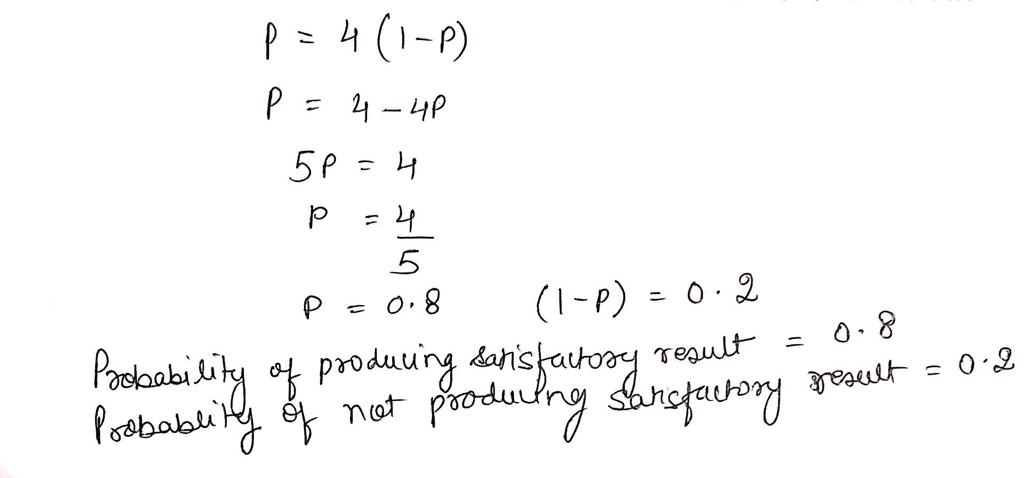 P = 4 (1-P)
P = 4 - 4P
5P = 4
P = 4/5
P = 0.8 (1-P) = 0.2
Probability of producing satisfactory result = 0.8
Probablity of not producing satisfactory result = 0.2